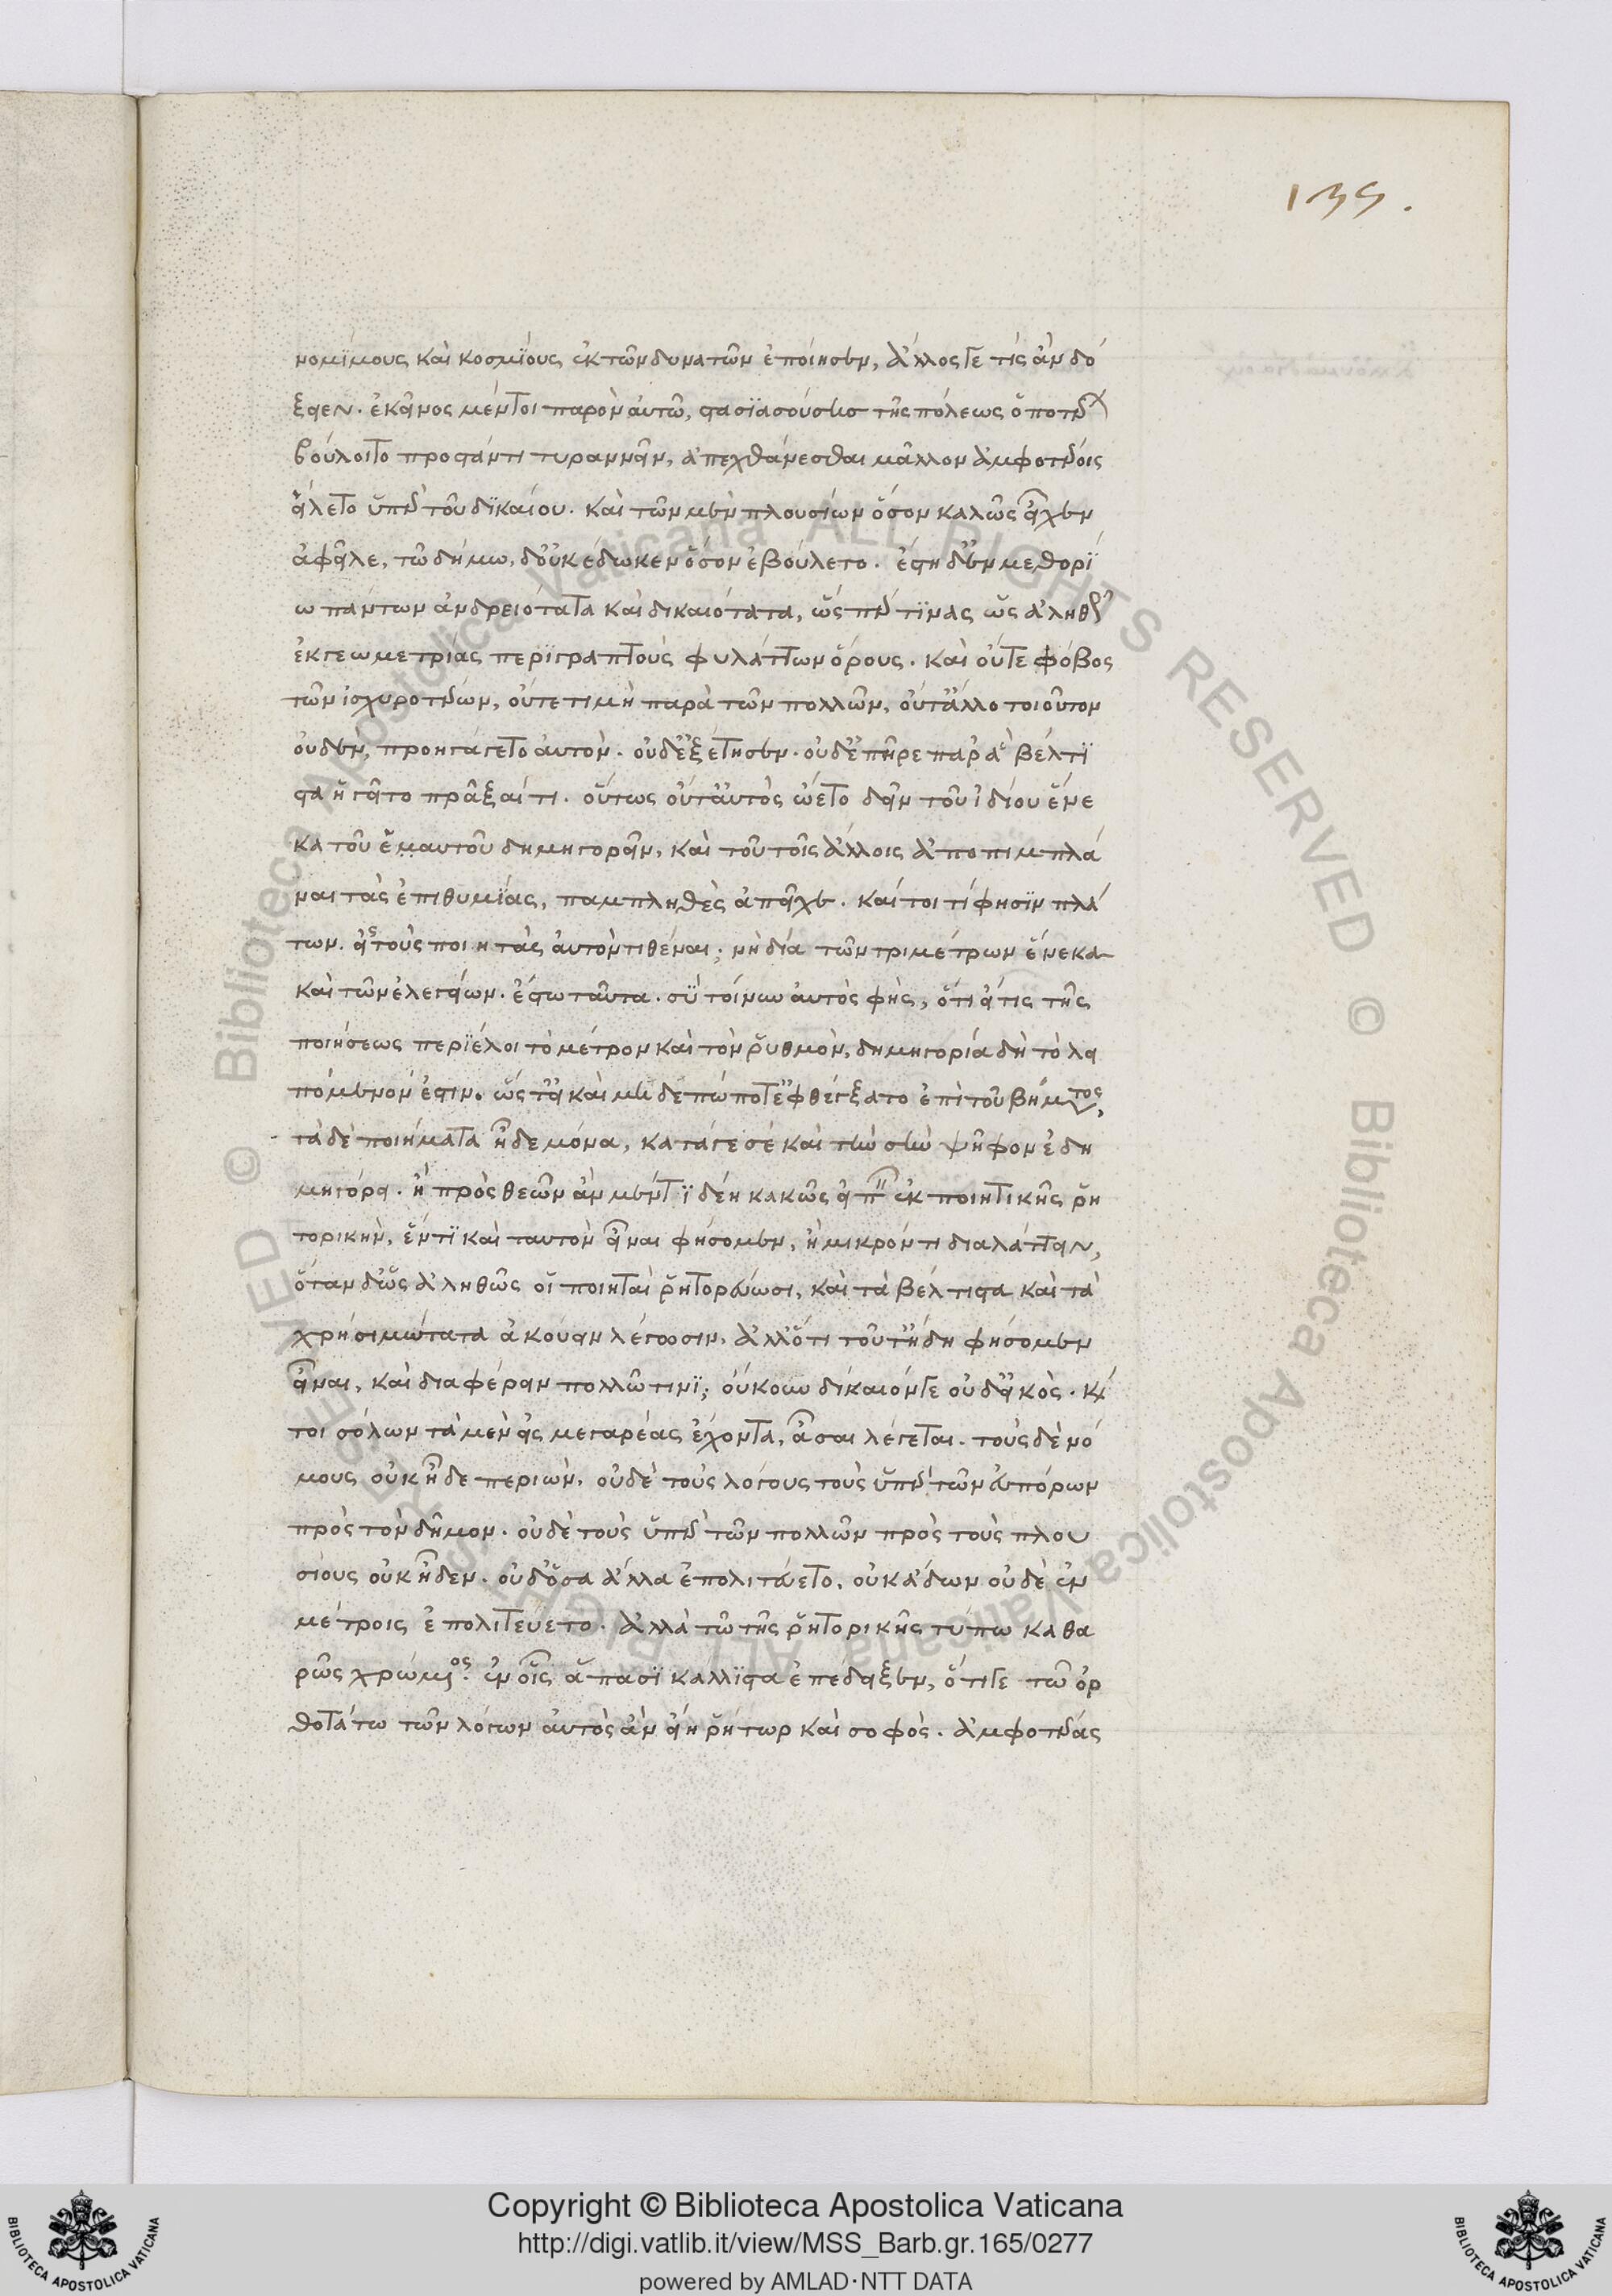 135.
νομίμους καὶ κοσμίους ἐκ τῶν δυνατῶν ἐποίησεν, ἄλλός γε τίς ἂν δό
ξειεν. ἐκεῖνος μέντοι παρὸν αὐτῷ, στασιασούσης τῆς πόλεως ὁποτέρων
βούλοιτο προστάντι τυραννεῖν, ἀπεχθάνεσθαι μᾶλλον ἀμφοτέροις
εἵλετο ὑπὲρ τοῦ δικαίου. καὶ τῶν μὲν πλουσίων ὅσον καλῶς εἶχεν
ἀφεῖλε, τῷ δήμῳ, δ' οὐκ ἔδωκεν ὅσον ἐβούλετο. ἔστη δ' ἐν μεθορί
ῳ πάντων ἀνδρειότατα καὶ δικαιότατα, ὥσπέρ τινας ὡς ἀληθῶς
ἐκ γεωμετρίας περιγραπτοὺς φυλάττων ὅρους. καὶ οὔτε φόβος
τῶν ἰσχυροτέρων, οὔτε τιμὴ παρὰ τῶν πολλῶν, οὔτ' ἄλλο τοιοῦτον
οὐδὲν, προηγάγετο αὐτὸν. οὐδ' ἐξέστησεν. οὐδ' ἐπῆρε παρ' ἃ βέλτι
στα ἡγεῖτο πρᾶξαί τι. οὕτως οὔτ' αὐτὸς ᾤετο δεῖν τοῦ ἰδίου ἕνε
κα τοῦ ἑμαυτοῦ δημηγορεῖν, καὶ τοῦ τοῖς ἄλλοις ἀποπιμπλά
ναι τὰς ἐπιθυμίας, παμπληθὲς ἀπεῖχε. καίτοι τί φησὶν πλά
των. εἰς τοὺς ποιητὰς αὐτὸν τιθέναι; νὴ δία τῶν τριμέτρων ἕνεκα
καὶ τῶν ἐλεγείων. ἔστω ταῦτα. σὺ τοίνυν αὐτὸς φὴς, ὅτι εἴ τις τῆς
ποιήσεως περιέλοι τὸ μέτρον καὶ τὸν ῥυθμὸν, δημηγορία δὴ τὸ λει
πόμενόν ἐστιν. ὥστ' εἰ καὶ μηδεπώποτ' ἐφθέγξατο ἐπὶ τοῦ βήματος,
τὰ δὲ ποιήματα ᾖδε μόνα, κατά γε σέ καὶ τὴν σὴν ψῆφον ἐδη
μηγόρει. ἢ πρὸς θεῶν ἂν μέν τι δέῃ κακῶς εἰπεῖν ἐκ ποιητικῆς ῥη
τορικὴν, ἕν τι καὶ ταυτὸν εἶναι φήσομεν, ἢ μικρόν τι διαλάττειν,
ὅταν δ' ὡς ἀληθῶς οἱ ποιηταὶ ῥητορεύωσι, καὶ τὰ βέλτιστα καὶ τὰ
χρησιμώτατα ἀκούειν λέγωσιν, ἀλλ' ὅτι τοῦτ' ἤδη φήσομεν
εἶναι, καὶ διαφέρειν πολλῷ τινί; οὔκουν δίκαιόν γε οὐδ' εἰκὸς. καί
τοι σόλων τὰ μὲν εἰς μεγαρέας ἔχοντα, ᾆσαι λέγεται. τοὺς δὲ νό
μους οὐκ ᾖδε περιὼν. οὐδὲ τοὺς λόγους τοὺς ὑπὲρ τῶν εὐπόρων
πρὸς τὸν δῆμον. οὐδὲ τοὺς ὑπὲρ τῶν πολλῶν πρὸς τοὺς πλου
σίους οὐκ ᾖδεν. οὐδ' ὅσα ἄλλα ἐπολιτεύετο, οὐκ ᾄδων οὐδὲ ἐν
μέτροις ἐπολιτεύετο. ἀλλὰ τῷ τῆς ῥητορικῆς τύπῳ καθα
ρῶς χρώμενος. ἐν οἷς ἅπασι κάλλιστα ἐπέδειξεν, ὅτι γε τῷ ὀρ
θοτάτῳ τῶν λόγων αὐτὸς ἂν εἴη ῥήτωρ καὶ σοφὸς. ἀμφοτέρας
Copyright © Biblioteca Apostolica Vaticana
http://digi.vatlib.it/view/MSS_Barb.gr.165/0277
powered by AMLAD·NTT DATA